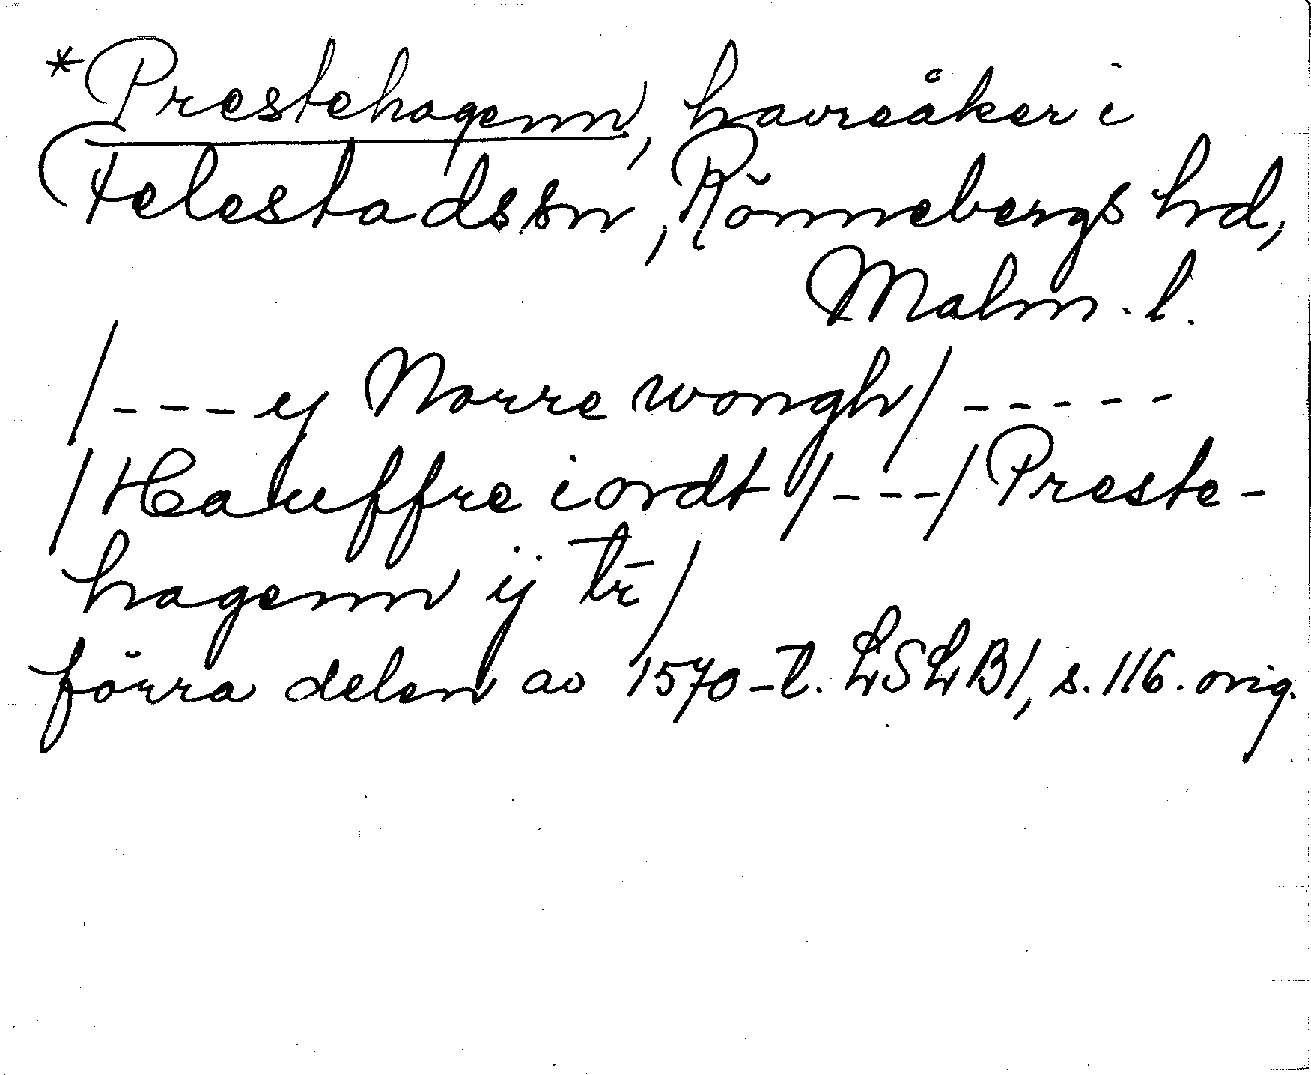 *Prestehagenn, havreåker i
Felestads sn, Rönnebergs hd,
Malm. l.
/---y Norre wongh/-----
/Hauffre iordt/---/Preste-
hagenn ij tr̄/
förra delen av 1570-t. LSLB1, s. 116. orig.